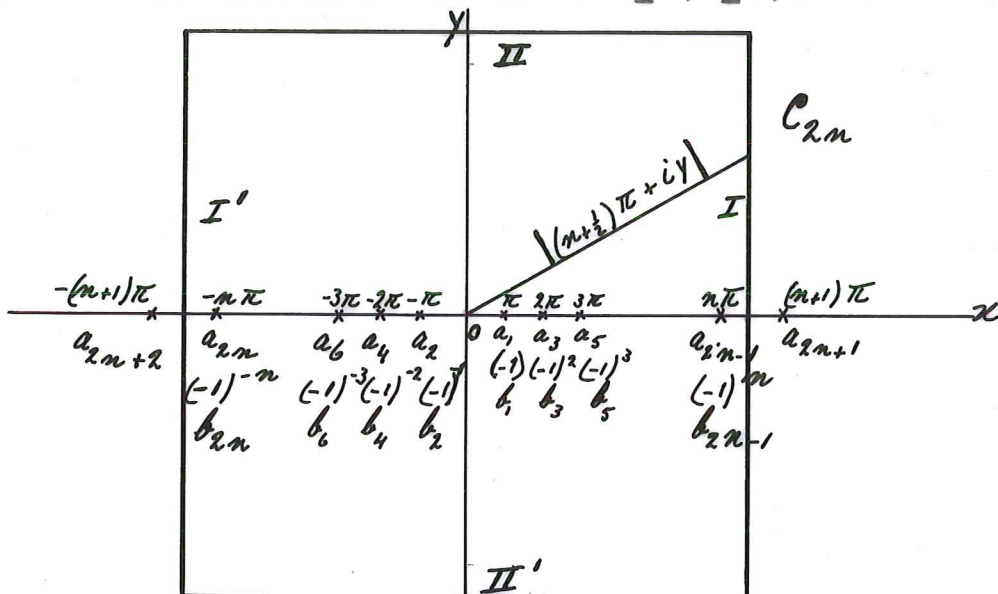 y
II
C_{2n}
(n+\frac{1}{2})π + iy
I'
I
-(n+1)π -nπ -3π -2π -π π 2π 3π nπ (n+1)π
x
0
a_{2n+2} a_{2n} a_6 a_4 a_2 a_1 a_3 a_5 a_{2n-1} a_{2n+1}
(-1)^{-n} (-1)^{-3} (-1)^{-2} (-1)^{-1} (-1) (-1)^2 (-1)^3 (-1)^n
b_{2n} b_6 b_4 b_2 b_1 b_3 b_5 b_{2n-1}
II'